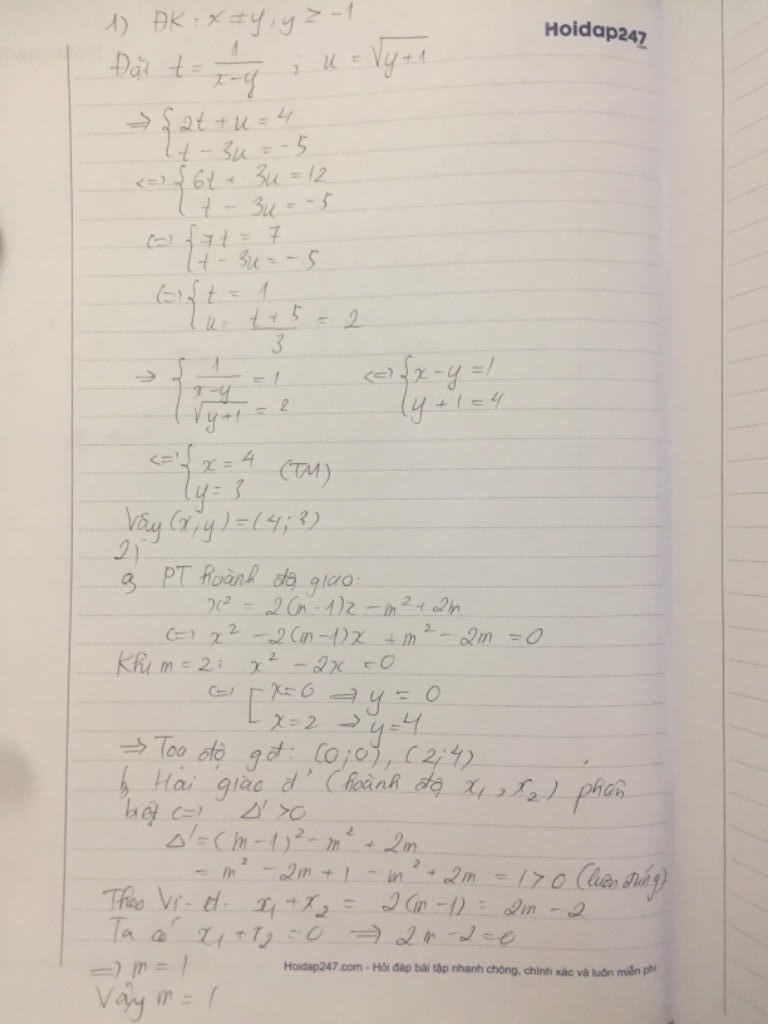 1) ĐK: x ≠ y, y ≥ -1
Hoidap247
.com
Đặt t = 1/(x-y) ; u = √(y+1)
=> { 2t + u = 4
t - 3u = -5
<=> { 6t + 3u = 12
t - 3u = -5
<=> { 7t = 7
t - 3u = -5
<=> { t = 1
u = (t+5)/3 = 2
=> { 1/(x-y) = 1 <=> { x-y = 1
√(y+1) = 2 y+1 = 4
<=> { x = 4 (TM)
y = 3
Vậy (x;y) = (4;3)
2)
a, PT hoành độ giao:
x² = 2(m-1)x - m² + 2m
<=> x² - 2(m-1)x + m² - 2m = 0
Khi m = 2: x² - 2x = 0
<=> [ x = 0 => y = 0
x = 2 => y = 4
=> Toạ độ gđ: (0;0), (2;4)
b, Hai giao đ' (hoành độ x₁, x₂) phân
biệt <=> Δ' > 0
Δ' = (m-1)² - m² + 2m
= m² - 2m + 1 - m² + 2m = 1 > 0 (luôn đúng)
Theo Vi-et: x₁ + x₂ = 2(m-1) = 2m - 2
Ta có x₁ + x₂ = 0 => 2m - 2 = 0
=> m = 1
Hoidap247.com - Hỏi đáp bài tập nhanh chóng, chính xác và luôn miễn phí
Vậy m = 1